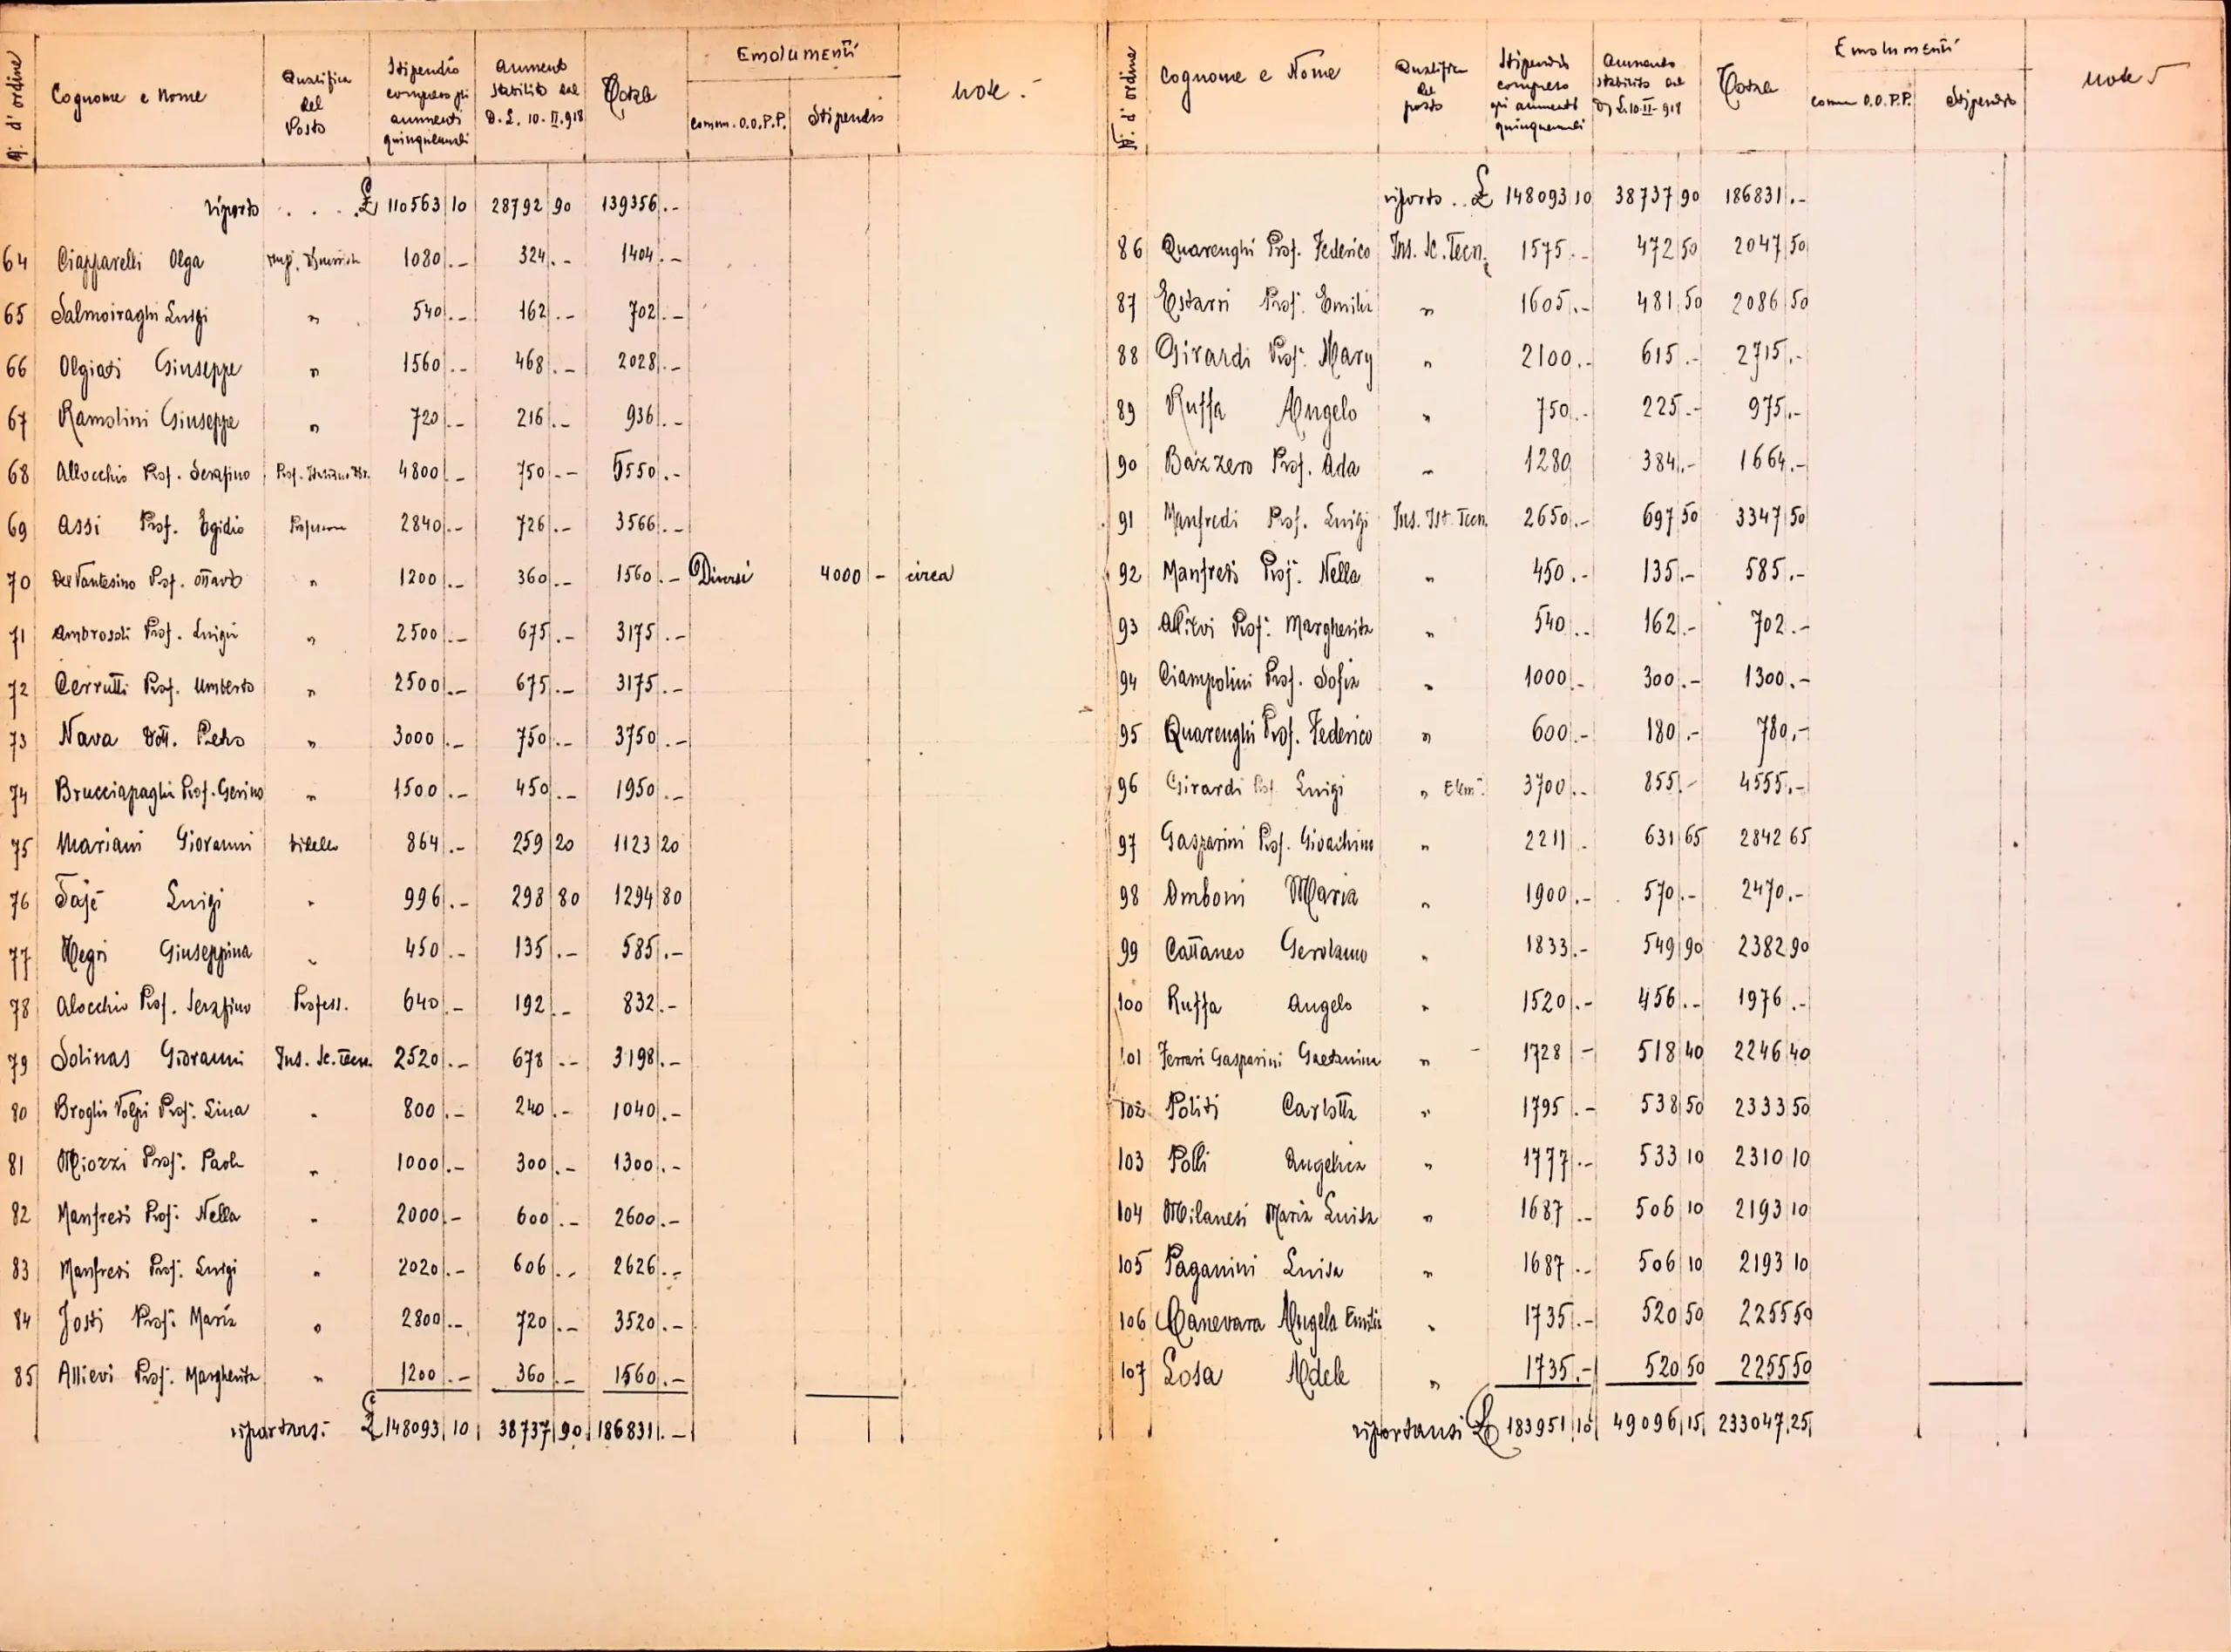 N. d'ordine | Cognome e Nome | Qualifica del Posto | Stipendio compreso gli aumenti quinquennali | Aumento stabilito dal D. L. 10-II-918 | Totale | Emolumenti | comm. O.O.P.P. | Stipendio | note
riporto . . . £ 110563 10 | 28792 90 | 139356.-
64 Ciapparelli Olga | 1080.- | 324.- | 1404.-
65 Salmoiraghi Luigi | " | 540.- | 162.- | 702.-
66 Olgiati Giuseppe | " | 1560.- | 468.- | 2028.-
67 Ramolini Giuseppe | " | 720.- | 216.- | 936.-
68 Allocchio Prof. Serafino | Prof. | 4800.- | 750.- | 5550.-
69 Assi Prof. Egidio | Professore | 2840.- | 726.- | 3566.-
70 Del Vantesino Prof. Ottavio | " | 1200.- | 360.- | 1560.- | Diversi | 4000 - | circa
71 Ambrosoli Prof. Luigia | " | 2500.- | 675.- | 3175.-
72 Cerrutti Prof. Umberto | " | 2500.- | 675.- | 3175.-
73 Nava Dott. Pietro | " | 3000.- | 750.- | 3750.-
74 Brucciapaghi Prof. Gerino | " | 1500.- | 450.- | 1950.-
75 Mariani Giovanni | bidello | 864.- | 259 20 | 1123 20
76 Tajè Luigi | " | 996.- | 298 80 | 1294 80
77 Negri Giuseppina | " | 450.- | 135.- | 585.-
78 Alocchio Prof. Serafino | Profess. | 640.- | 192.- | 832.-
79 Solinas Giovanni | Ins. Sc. Tecn. | 2520.- | 678.- | 3198.-
80 Broglio Volpi Prof. Lina | " | 800.- | 240.- | 1040.-
81 Miozzi Prof. Paola | " | 1000.- | 300.- | 1300.-
82 Manfredi Prof. Nella | " | 2000.- | 600.- | 2600.-
83 Manfredi Prof. Luigi | " | 2020.- | 606.- | 2626.-
84 Josti Prof. Maria | " | 2800.- | 720.- | 3520.-
85 Allievi Prof. Margherita | " | 1200.- | 360.- | 1560.-
riportansi £ 148093 10 | 38737 90 | 186831.-
N. d'ordine | Cognome e Nome | Qualifica del posto | Stipendio compreso gli aumenti quinquennali | Aumento stabilito dal D. L. 10-II-918 | Totale | Emolumenti | comm. O.O.P.P. | Stipendio | note
riporto .. £ 148093 10 | 38737 90 | 186831.-
86 Quarenghi Prof. Federico | Ins. Sc. Tecn. | 1575.- | 472 50 | 2047 50
87 Estarri Prof. Emilia | " | 1605.- | 481 50 | 2086 50
88 Girardi Prof. Mary | " | 2100.- | 615.- | 2715.-
89 Ruffa Angelo | " | 750.- | 225.- | 975.-
90 Bazzero Prof. Ada | " | 1280 | 384.- | 1664.-
91 Manfredi Prof. Luigi | Ins. Ist. Tecn. | 2650.- | 697 50 | 3347 50
92 Manfredi Prof. Nella | " | 450.- | 135.- | 585.-
93 Allievi Prof. Margherita | " | 540.- | 162.- | 702.-
94 Ciampolini Prof. Sofia | " | 1000.- | 300.- | 1300.-
95 Quarenghi Prof. Federico | " | 600.- | 180.- | 780.-
96 Girardi Prof. Luigi | " Elem. | 3700.- | 855.- | 4555.-
97 Gasparini Prof. Gioachino | " | 2211 - | 631 65 | 2842 65
98 Omboni Maria | " | 1900.- | 570.- | 2470.-
99 Cattaneo Gerolamo | " | 1833.- | 549 90 | 2382 90
100 Ruffa Angelo | " | 1520.- | 456.- | 1976.-
101 Ferrari Gasparini Gaetanina | " | 1728 - | 518 40 | 2246 40
102 Politi Carlotta | " | 1795.- | 538 50 | 2333 50
103 Polli Angelica | " | 1777.- | 533 10 | 2310 10
104 Milanesi Maria Luisa | " | 1687.- | 506 10 | 2193 10
105 Paganini Luisa | " | 1687.- | 506 10 | 2193 10
106 Canevara Angela Emilia | " | 1735.- | 520 50 | 2255 50
107 Losa Adele | " | 1735.- | 520 50 | 2255 50
riportansi £ 183951 10 | 49096 15 | 233047 25